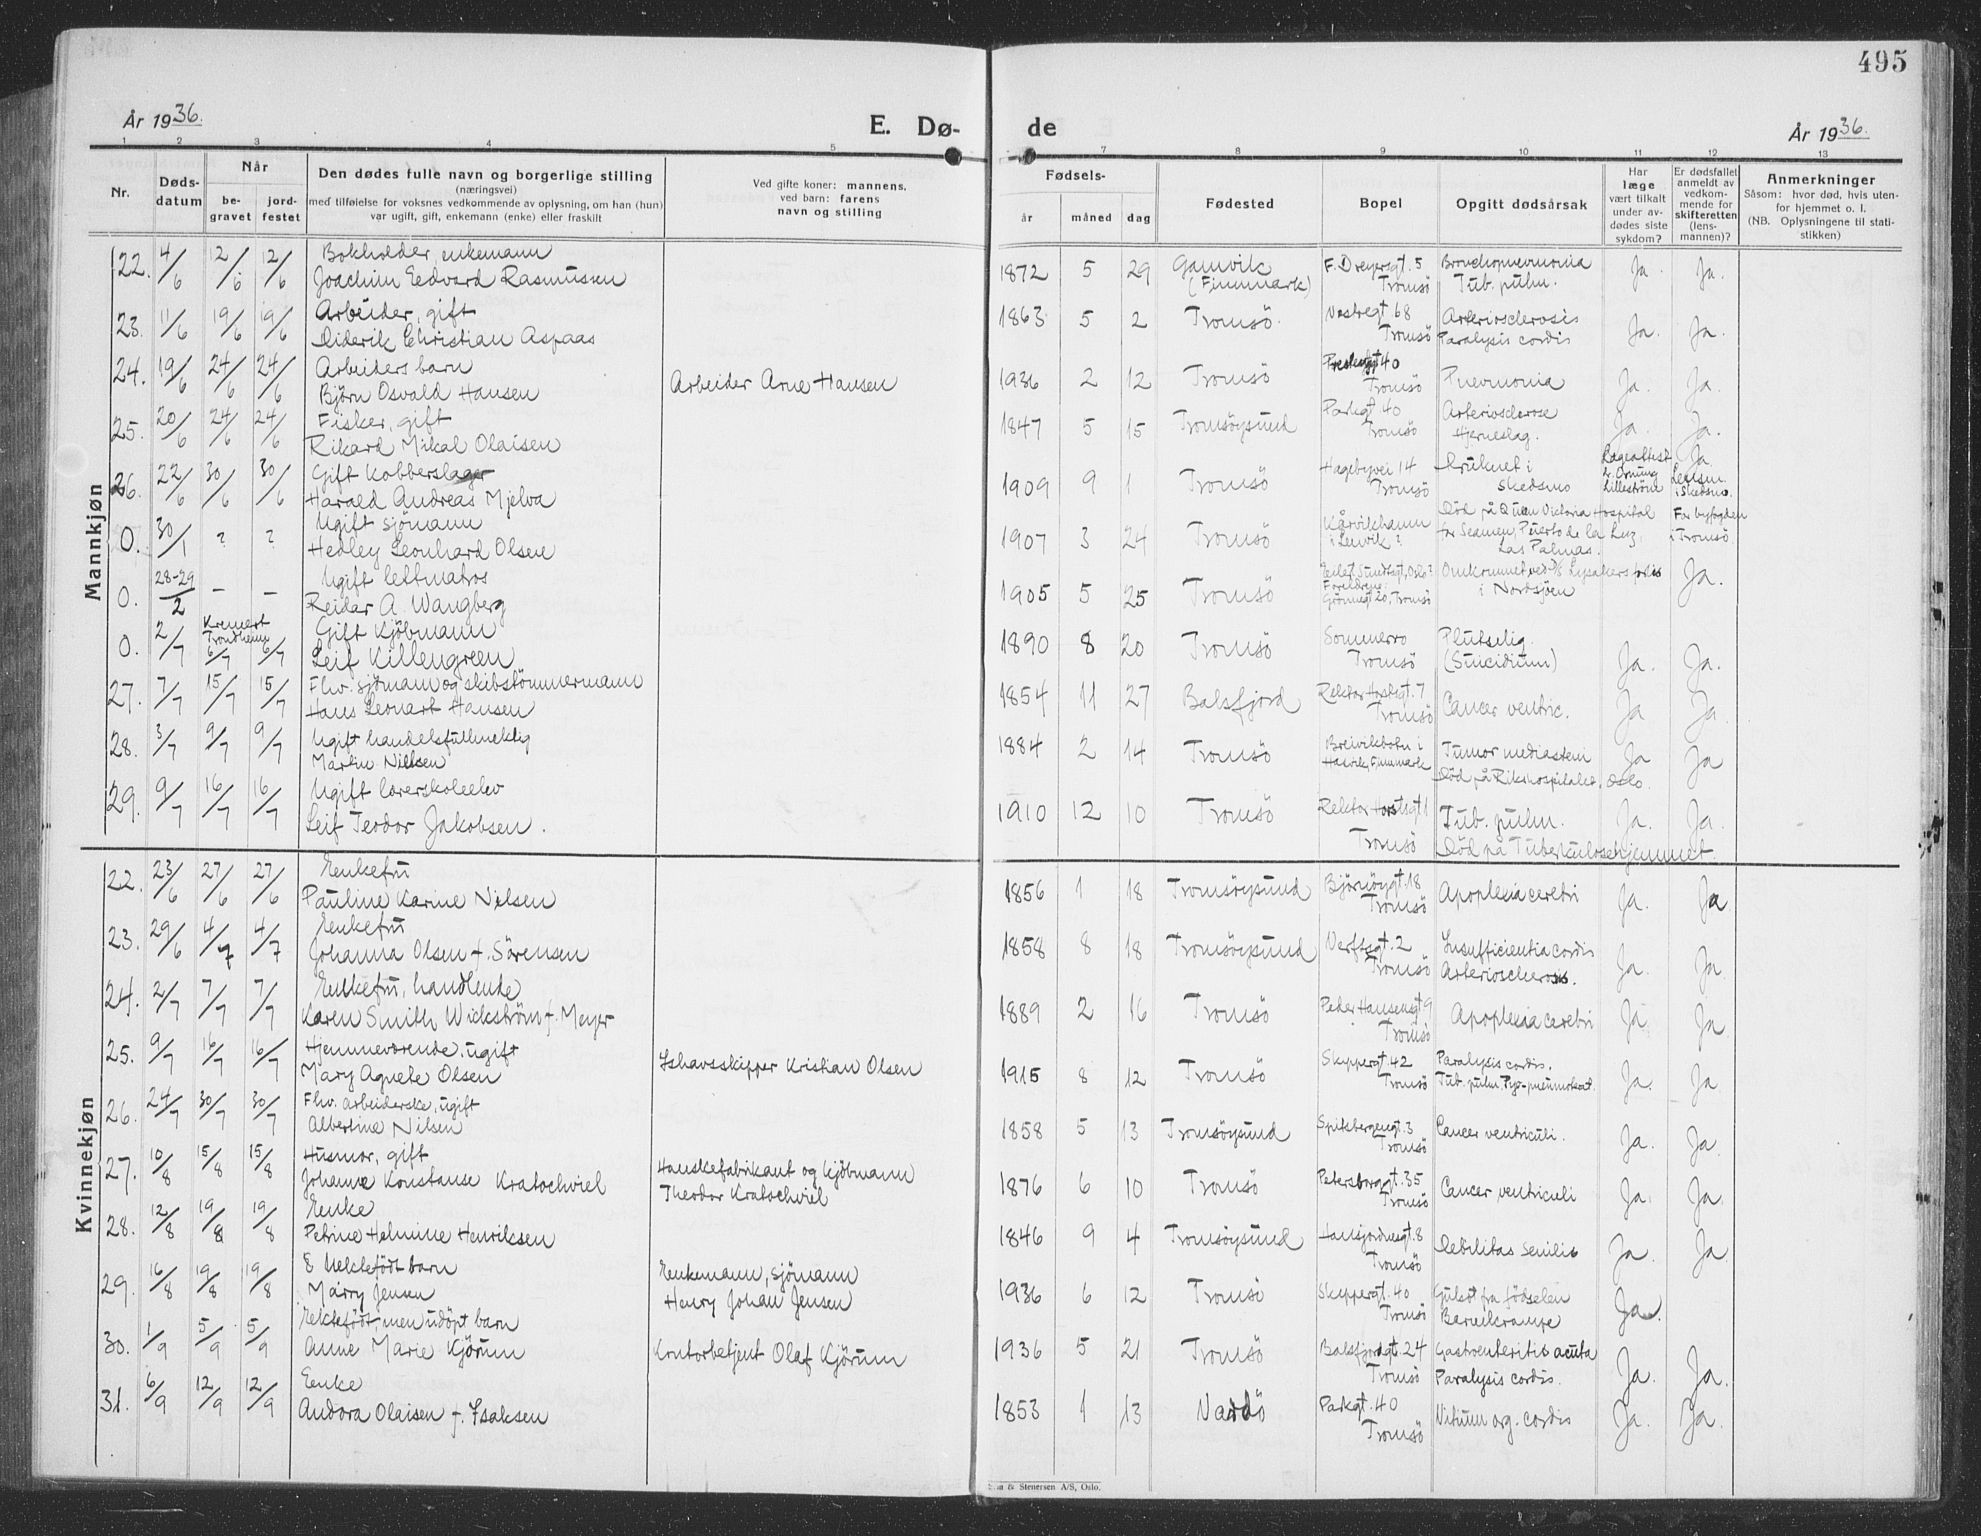 495
År 1936.
E. Dø-
de
År 1936.
1 2 3 4 5 7 8 9 10 11 12 13
Nr.
Døds-
datum
Når
be-
gravet
jord-
festet
Den dødes fulle navn og borgerlige stilling
(næringsvei)
med tilføielse for voksnes vedkommende av oplysning, om han (hun)
var ugift, gift, enkemann (enke) eller fraskilt
Ved gifte koner: mannens,
ved barn: farens
navn og stilling
Fødsels-
år
måned
dag
Fødested
Bopel
Opgitt dødsårsak
Har
læge
vært tilkalt
under av-
dødes siste
sykdom?
Er dødsfallet
anmeldt av
vedkom-
mende for
skifteretten
(lens-
mannen)?
Anmerkninger
Såsom: hvor død, hvis uten-
for hjemmet o. l.
(NB. Oplysningene til stati-
stikken)
Mannkjøn
22. 4/6 12/6 12/6 Bokholder, enkemann
Joachim Eedvard Rasmussen
1872 5 29 Gamvik (Finnmark) F. Dreyersgt. 5 Tromsö Bronchopnevmonia Tub. pulm. Ja. Ja.
23. 11/6 19/6 19/6 Arbeider, gift
Diderik Christian Aspaas
1863 5 2 Tromsö. Vestregt 68 Tromsö Arteriosclerosis Paralysis cordis Ja. Ja.
24. 19/6 24/6 24/6 Arbeiders barn
Björn Osvald Hansen
Arbeider Arne Hansen
1936 2 12 Tromsö 40 Tromsö Pnevmonia Ja. Ja.
25. 20/6 24/6 24/6 Fisker, gift
Rikard Mikal Olaisen
1847 5 15 Tromsöysund Parkgt 40 Tromsö Arteriosclerose Hjerneslag. Ja. Ja.
26. 22/6 30/6 30/6 Gift Kobberslager
Harald Andreas Mjelva
1909 9 1 Tromsö Hagebyvei 14 Tromsö Druknet i Skedsmo Lægeattest Lilleström Ja. Lensm. i Skedsmo.
0. 30/1 ? ? Ugift sjömann
Hedley Leonhard Olsen
1907 3 24 Tromsö Kårvikhamn i Lenvik? Död på Queen Victoria Hospital for Seamen, Puerto de la Luz, Las Palmas. For byfogden i Tromsö.
0. 28-29/2 - - Ugift lettmatros
Reidar A. Wangberg
1905 5 25 Tromsö Eilert Sundtsgt, Oslo? Foreldrene: Grönnegt 20, Tromsö Omkommet ved D/S Lysakers forlis i Nordsjöen Ja.
0. 2/7 Kremert Trondheim 6/7 6/7 Gift Kjöbmann
Leif Killengreen
1890 8 20 Tromsö Sommerro Tromsö Plutselig (Suicidium) Ja. Ja.
27. 7/7 15/7 15/7 Fhv. sjömann og skibstömmermann
Hans Leonart Hansen
1854 11 27 Balsfjord Rektor Horstsgt. 7 Tromsö Cancer ventric. Ja Ja
28. 3/7 9/7 9/7 Ugift handelsfullmektig
Martin Nilsen
1884 2 14 Tromsö Breivikbotn i Hasvik, Finnmark Tumor mediastini Död på Rikshospitalet, Oslo. Ja Ja
29. 9/7 16/7 16/7 Ugift lærerskoleelev
Leif Teodor Jakobsen.
1910 12 10 Tromsö Rektor Horstsgt 1 Tromsö Tub. pulm. Död på Tuberkulosehjemmet. Ja. Ja.
Kvinnekjøn
22. 23/6 27/6 27/6 Enkefru
Pauline Karine Nilsen
1856 1 18 Tromsöysund Björnöygt. 18 Tromsö Apoplexia cerebri Ja. Ja.
23. 29/6 4/7 4/7 Enkefru
Johanna Olsen f. Sörensen
1858 8 18 Tromsöysund Verftsgt. 2 Tromsö Insufficientia cordis Arteriosclerosis. Ja. Ja.
24. 2/7 7/7 7/7 Enkefru, handlende
Karen Smith Wickström f. Meyer
1889 2 16 Tromsö Peder Hansensgt 9 Tromsö Apoplexia cerebri Ja Ja
25. 9/7 16/7 16/7 Hjemmeværende, ugift
Mary Agnete Olsen
Ishavsskipper Kristian Olsen
1915 8 12 Tromsö Skippergt. 42 Tromsö Paralysis cordis. Tub. pulm. Pyo-pneumothorax. Ja. Ja
26. 24/7 30/7 30/7 Fhv. arbeiderske, ugift
Albertine Nilsen
1858 5 13 Tromsöysund Spitsbergengt. 3 Tromsö Cancer ventriculi. Ja. Ja.
27. 10/8 15/8 15/8 Husmor, gift
Johanne Konstanse Kratochwiel
Hanskefabrikant og kjöbmann
Theodor Kratochwiel
1876 6 10 Tromsö Petersborggt. 35 Tromsö Cancer ventriculi Ja. Ja.
28. 12/8 19/8 19/8 Enke
Petrine Helmine Henriksen
1846 9 4 Tromsöysund Hansjordnesgt. 8 Tromsö Debilitas senilis Ja. Ja
29. 16/8 19/8 19/8 Ektefödt barn
Marry Jensen
Enkemann, sjömann
Henry Johan Jensen
1936 6 12 Tromsö Skippergt. 40 Tromsö Gulsot fra födselen Barnekrampe Ja.
30. 1/9 5/9 5/9 Ektefödt, men udöpt barn
Anne Marie Kjörum
Kontorbetjent Olaf Kjörum
1936 5 21 Tromsö Balsfjordgt. 24 Tromsö Gastroenteritis acuta Paralysis cordis. Ja. Ja.
31. 6/9 12/9 12/9 Enke
Andora Olaisen f. Isaksen
1853 1 13 Vardö Parkgt. 40 Tromsö Vitium org. cordis Ja. Ja.
& Stenersen A/S, Oslo.